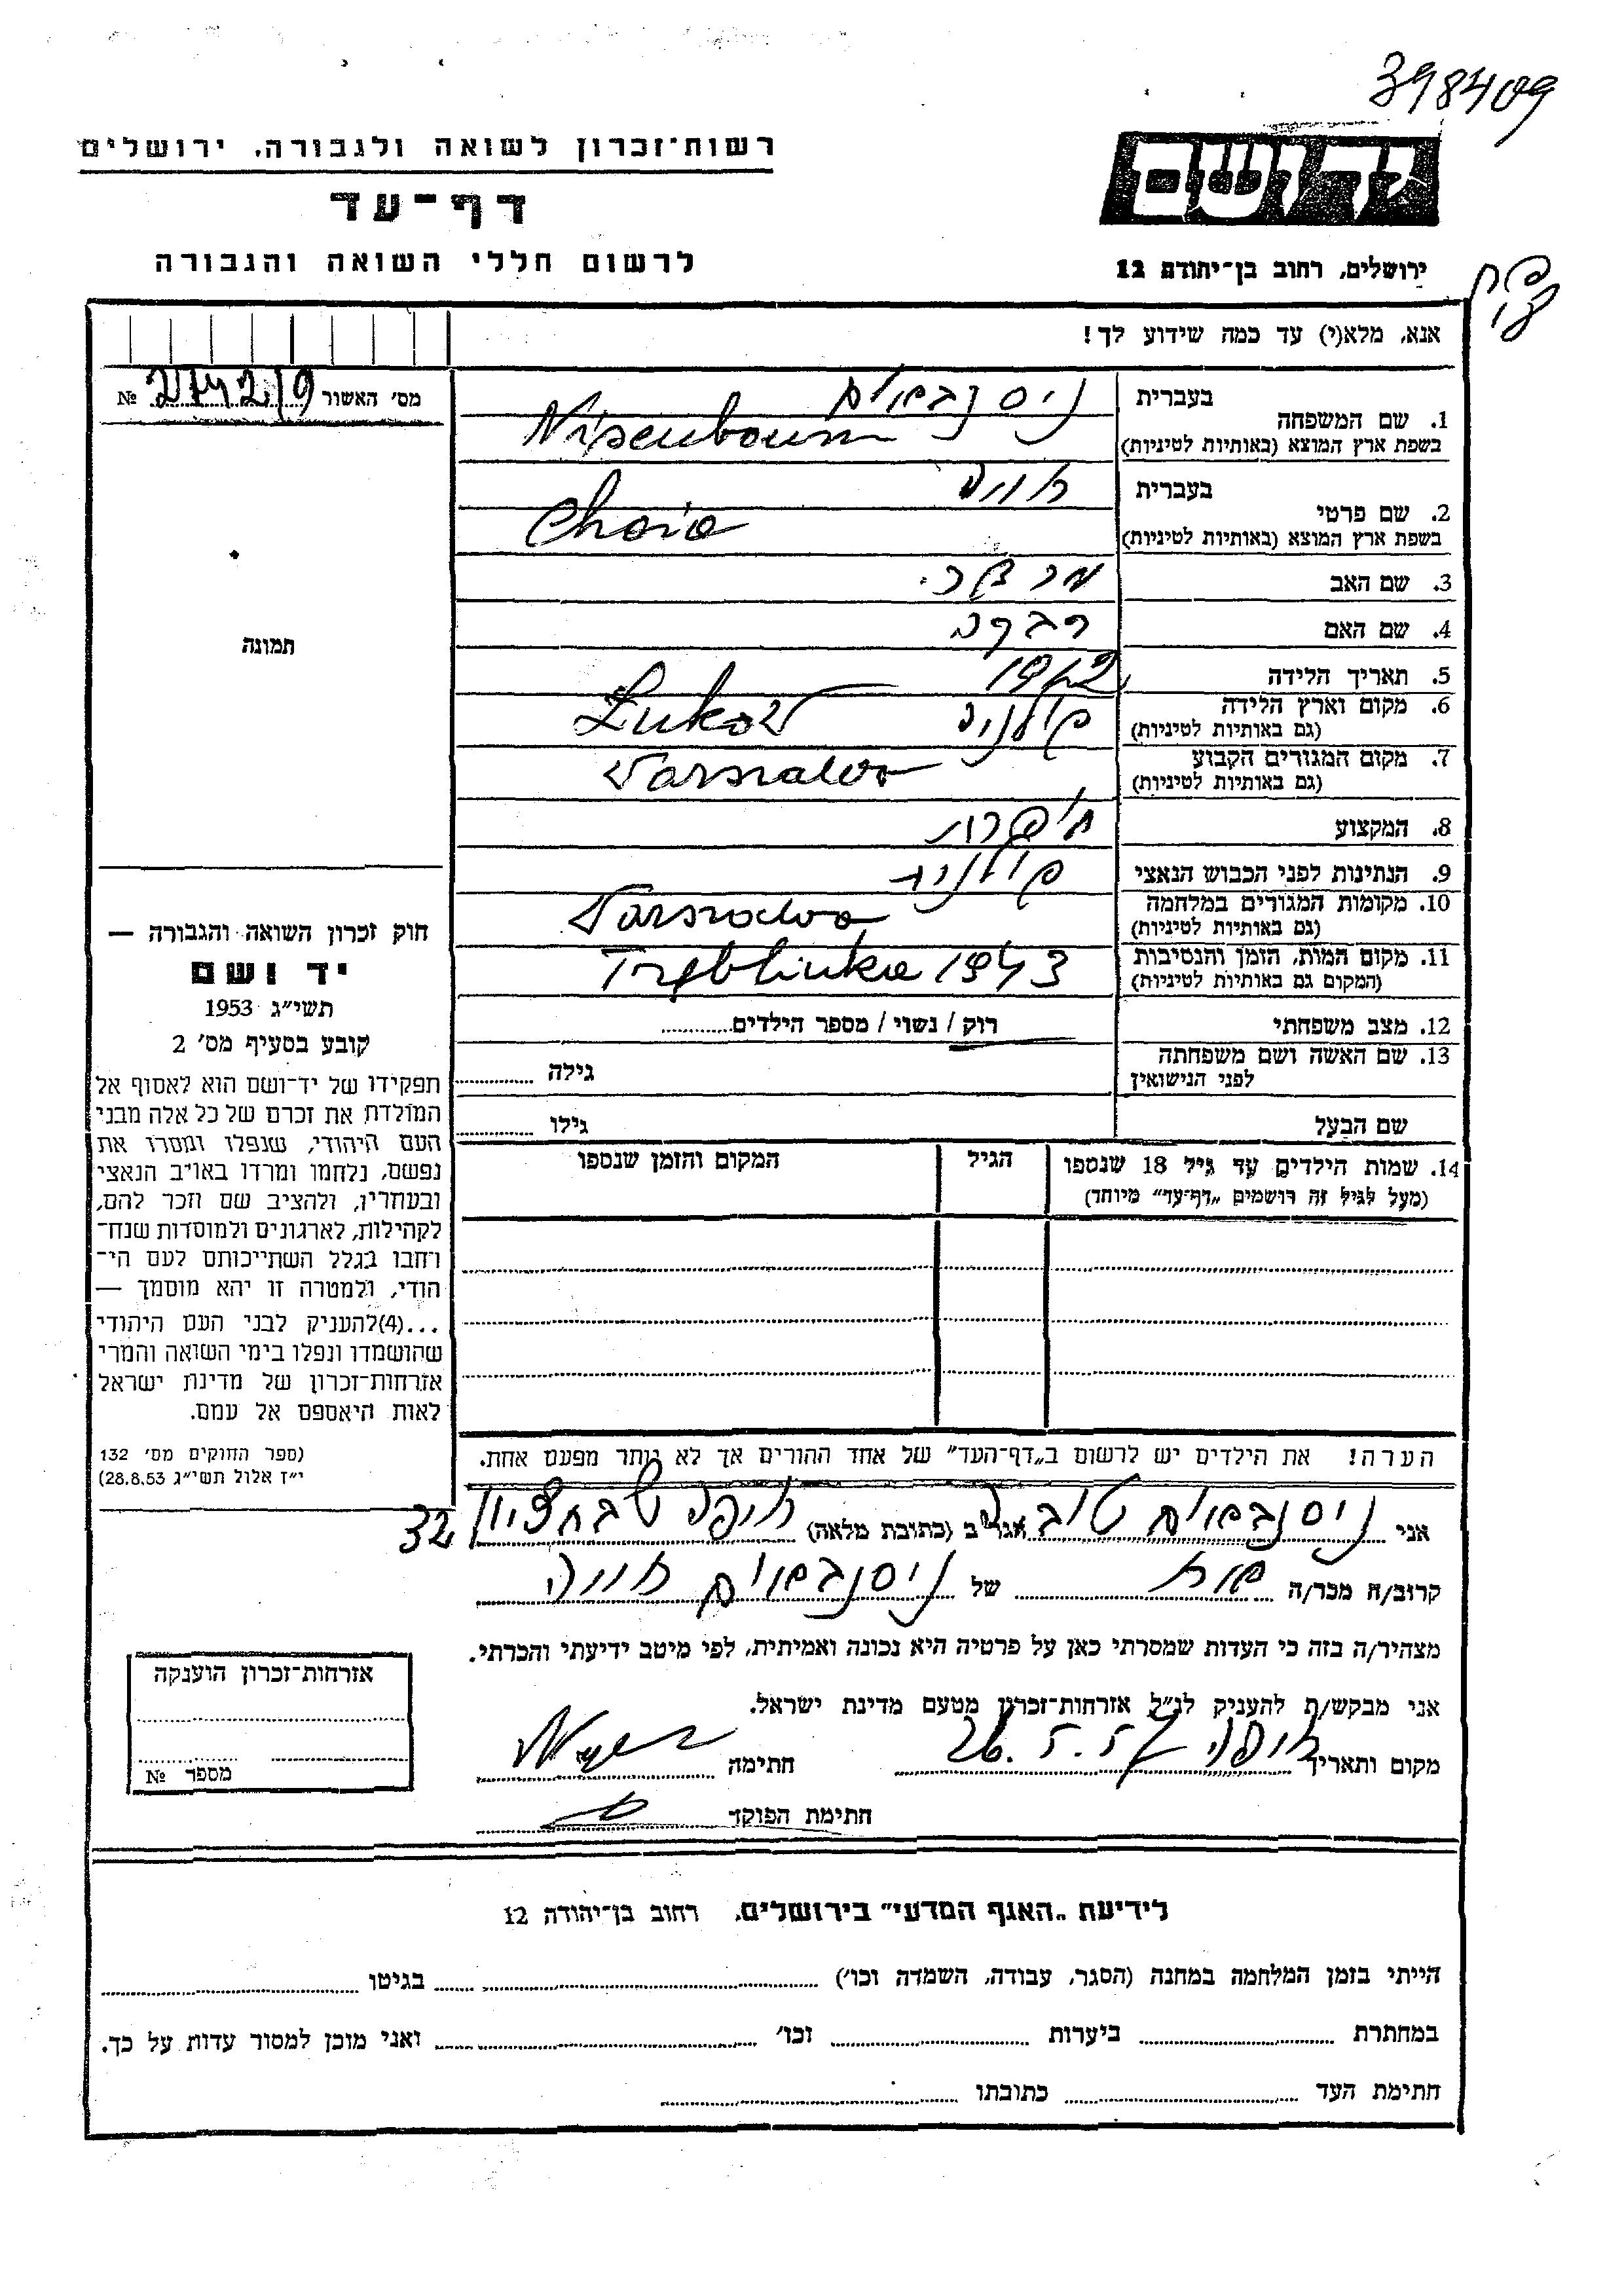 398409
רשות־זכרון לשואה ולגבורה, ירושלים
יד ושם
דף־עד
לרשום חללי השואה והגבורה
ירושלים, רחוב בן־יהודה 12
אנא, מלא(י) עד כמה שידוע לך!
מס׳ האשור № 274219
בעברית ניסנבוים
1. שם המשפחה
בשפת ארץ המוצא (באותיות לטיניות) Nisenboum
בעברית חויה
2. שם פרטי
בשפת ארץ המוצא (באותיות לטיניות) Chaia
3. שם האב מרדכי
4. שם האם רבקה
5. תאריך הלידה
6. מקום וארץ הלידה פולניה Lukow
(גם באותיות לטיניות)
7. מקום המגורים הקבוע Varszawa
(גם באותיות לטיניות)
8. המקצוע תופרת
9. הנתינות לפני הכבוש הנאצי פולנית
10. מקומות המגורים במלחמה Varszawa
(גם באותיות לטיניות)
11. מקום המות, הזמן והנסיבות Treblinka 1943
(המקום גם באותיות לטיניות)
12. מצב משפחתי רוק / נשוי / מספר הילדים
13. שם האשה ושם משפחתה גילה
לפני הנישואין
שם הבעל גילו
תמונה
חוק זכרון השואה והגבורה —
יד ושם
תשי״ג 1953
קובע בסעיף מס׳ 2
תפקידו של יד־ושם הוא לאסוף אל
המולדת את זכרם של כל אלה מבני
העם היהודי, שנפלו ומסרו את
נפשם, נלחמו ומרדו באויב הנאצי
ובעוזריו, ולהציב שם וזכר להם,
לקהילות, לארגונים ולמוסדות שנח־
רחבו בגלל השתייכותם לעם הי־
הודי, ולמטרה זו יהא מוסמך —
...(4)להעניק לבני העם היהודי
שהושמדו ונפלו בימי השואה והמרי
אזרחות־זכרון של מדינת ישראל
לאות היאספם אל עמם.
(ספר החוקים מס׳ 132
י״ז אלול תשי״ג 28.8.53)
14. שמות הילדים עד גיל 18 שנספו הגיל המקום והזמן שנספו
(מעל לגיל זה רושמים „דף־עד״ מיוחד)
הערה! את הילדים יש לרשום ב„דף־העד״ של אחד ההורים אך לא יותר מפעם אחת.
אני ניסנבוים טובה הגר ב (כתובת מלאה) חיפה שבת ציון 32
קרוב/ה מכר/ה של ניסנבוים חויה
מצהיר/ה בזה כי העדות שמסרתי כאן על פרטיה היא נכונה ואמיתית, לפי מיטב ידיעתי והכרתי.
אני מבקש/ת להעניק לנ״ל אזרחות־זכרון מטעם מדינת ישראל.
מקום ותאריך חיפה 26.5.57 חתימה
חתימת הפוקד
אזרחות־זכרון הוענקה
מספר №
לידיעת „האגף המדעי״ בירושלים, רחוב בן־יהודה 12
הייתי בזמן המלחמה במחנה (הסגר, עבודה, השמדה וכו׳) בגיטו
במחתרת ביערות וכו׳ ואני מוכן למסור עדות על כך.
חתימת העד כתובתו